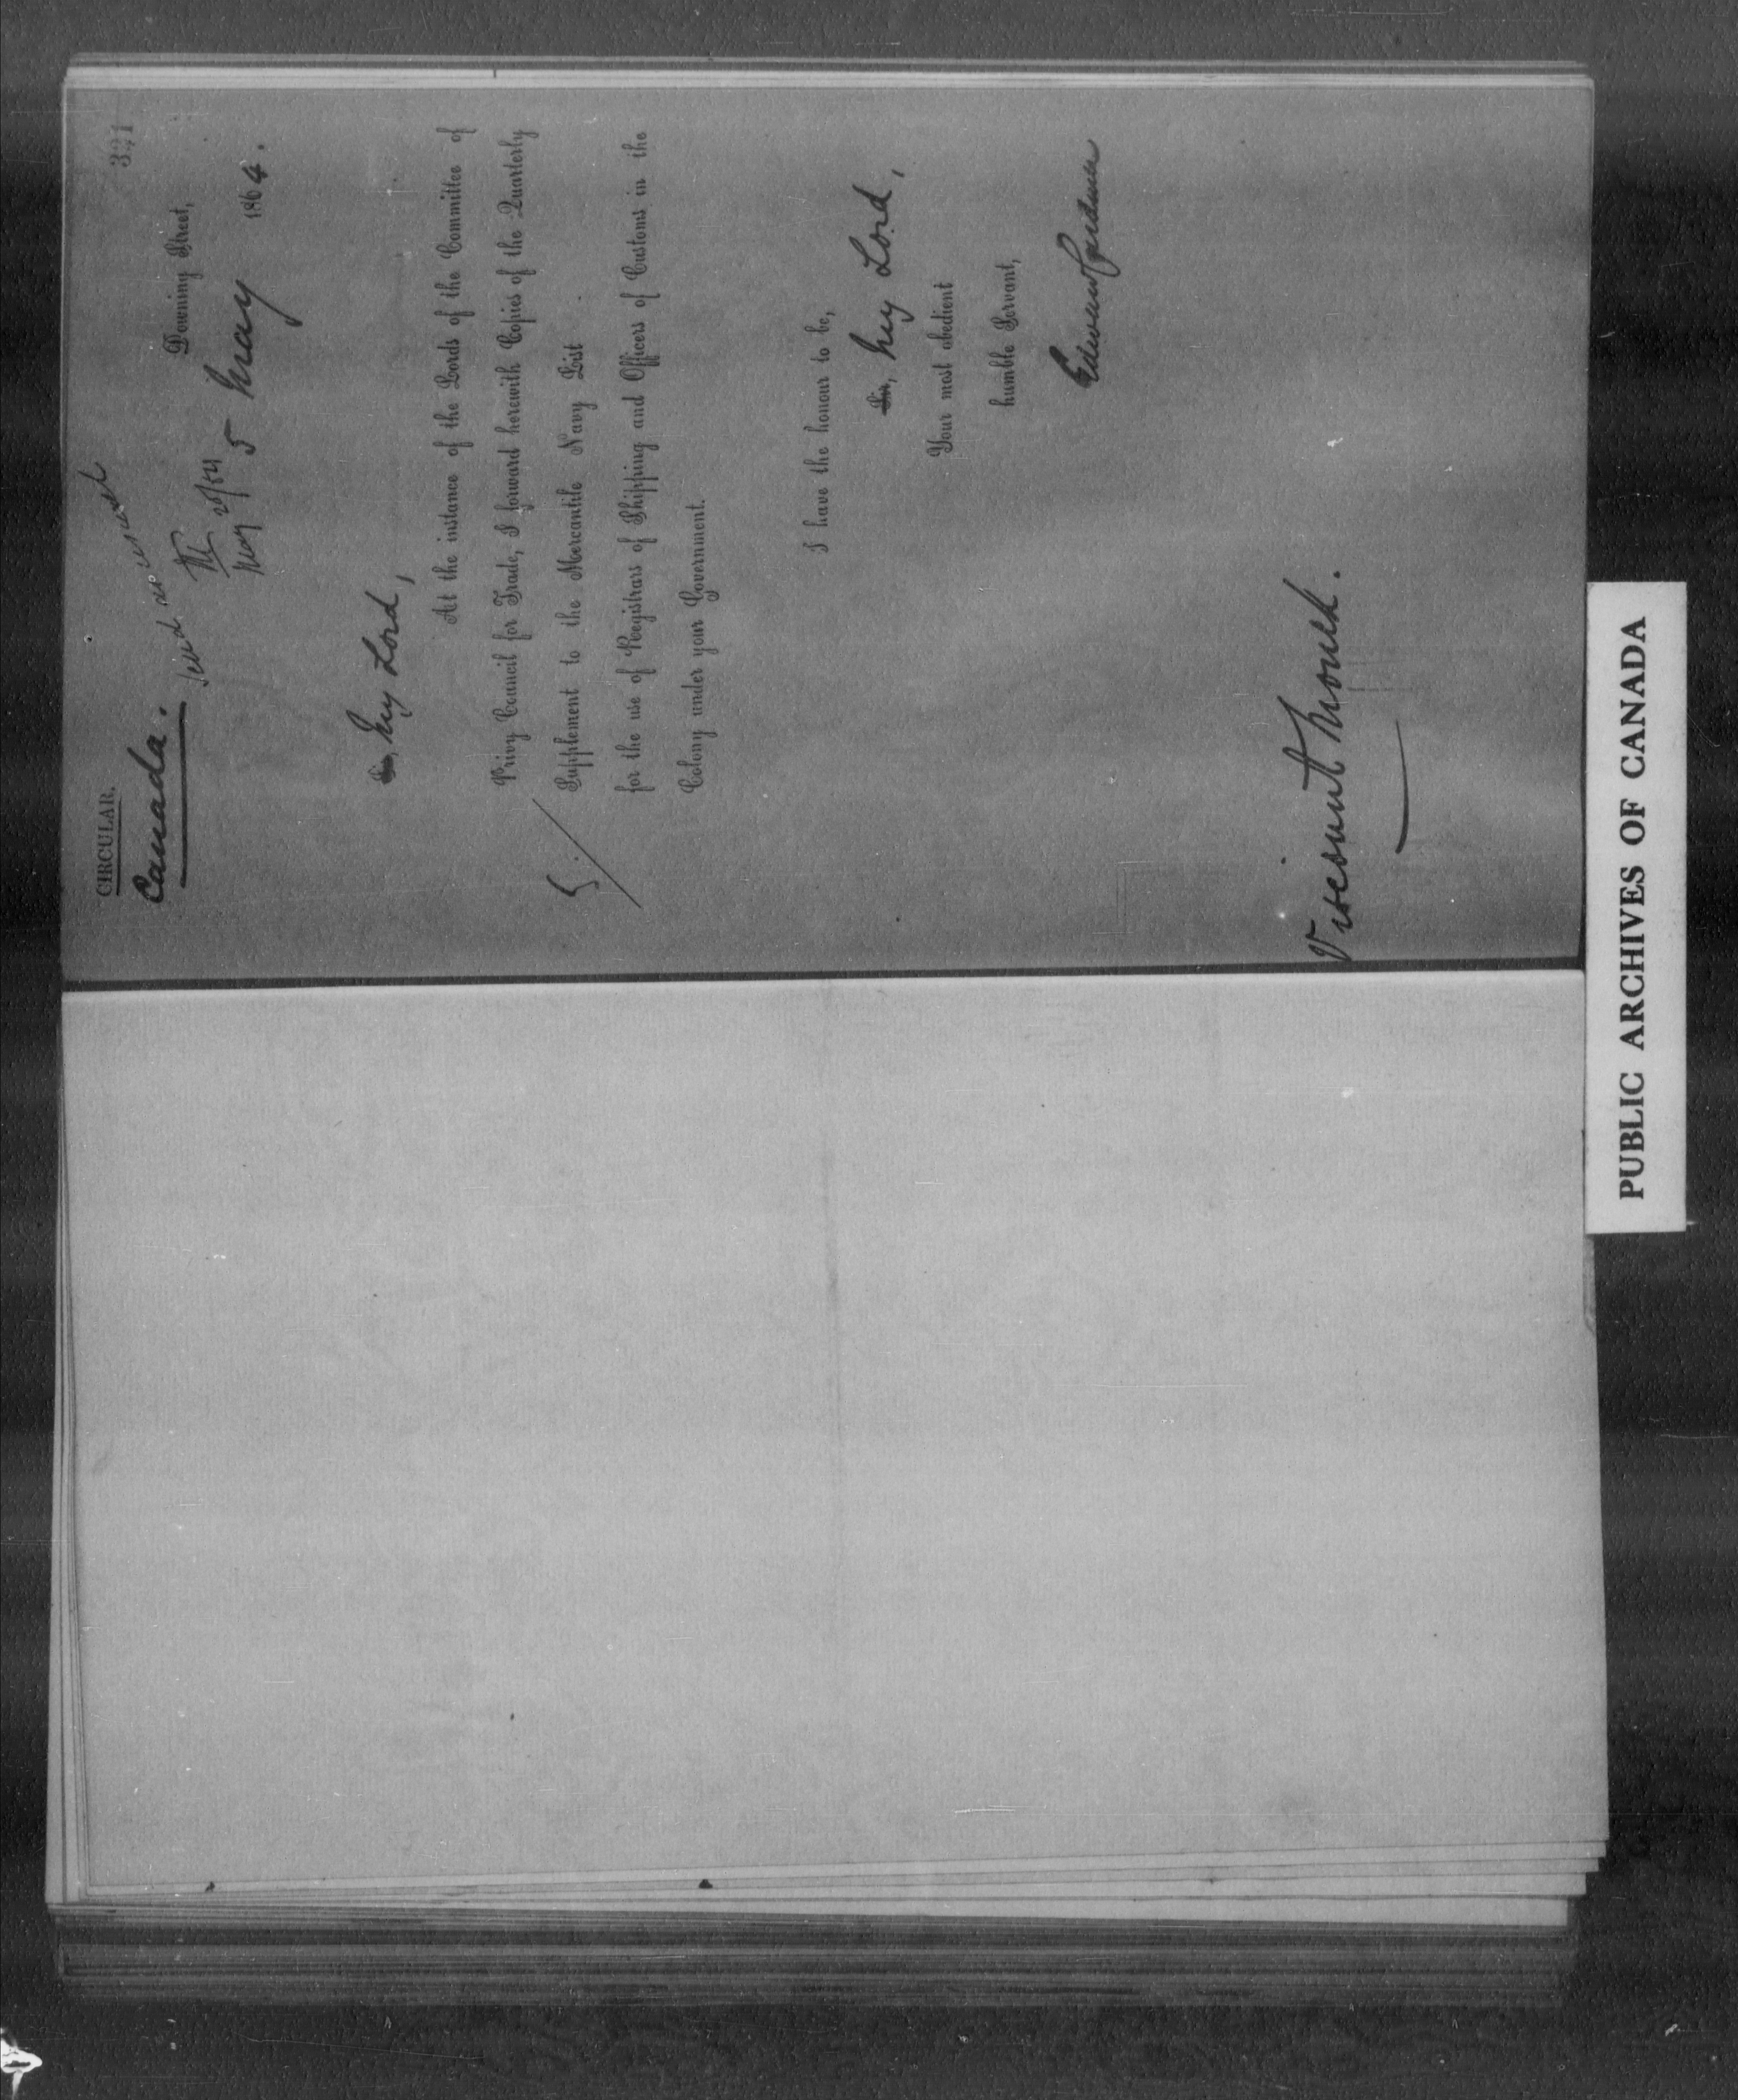 321
CIRCULAR.
Canada.
send as usual
May 20/64
Downing Street,
5 May 1864.
Sir, My Lord,
At the instance of the Lords of the Committee of
Privy Council for Trade, I forward herewith Copies of the Quarterly
Supplement to the Mercantile Navy List
for the use of Registrars of Shipping and Officers of Customs in the
Colony under your Government.
I have the honour to be,
Sir, My Lord,
Your most obedient
humble Servant,
Edward Cardwell
Viscount Monck.
PUBLIC ARCHIVES OF CANADA